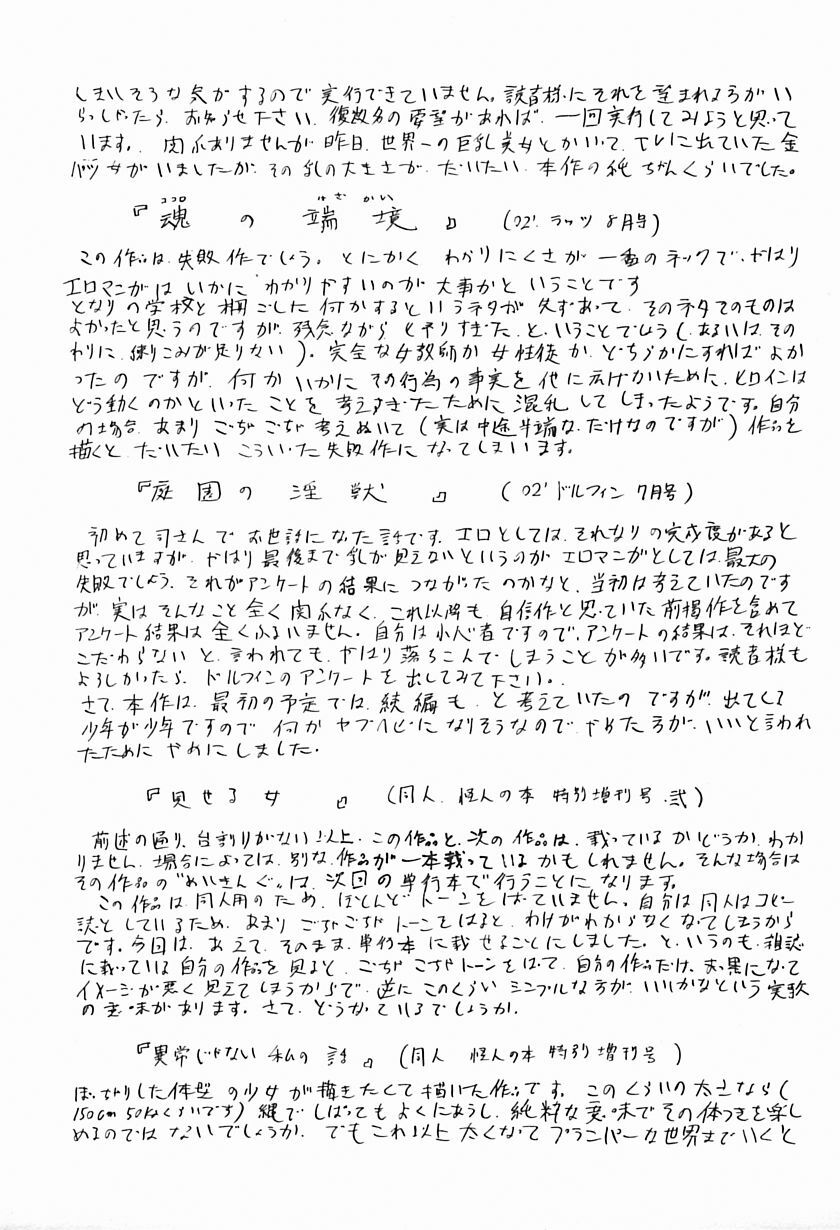 しまいそうな気がするので実行できていません。読者様にそれを望まれる方がい
らっしゃったら、お知らせ下さい。復数分の要望があれば、一回実行してみようと思って
います。関係ありませんが昨日、世界一の巨乳美女とかいって、TVに出ていた金
パツ女がいましたが、その乳の大きさが、だいたい、本作の純ちゃんくらいでした。
『魂の端境』(02'.ラッツ8月号)
ココロ はざかい
この作品は、失敗作でしょう。とにかく わかりにくさが一番のネックで、やはり
エロマンガは いかに わかりやすいのが 大事かと いうことです
となりの学校と 柵ごしに 何かするというネタが 先ずあって、そのネタそのものは
よかったと思うのですが、残念ながら とやりすぎた、と、いうことでしょう(あるいは、その
わりに、練りこみが足りない)。完全な女教師か 女性徒か、どちらかにすれば よか
ったの ですが、何か いかに その行為の事実を 他に広げないために、ヒロインは
どう動くのかといった ことを 考えすぎたために 混乱 して しまったようです。自分
の場合、あまり ごちゃごちゃ 考えぬいて(実は中途半端な、だけなのですが)作品を
描くと、だいたい こういった失敗作に なってしまいます。
『庭園の淫獣』(02'ドルフィン7月号)
初めて司さんで お世話になった話です。エロとしては、それなりの完成度があると
思っていますが、やはり最後まで乳が見えないというのが エロマンガとしては、最大の
失敗でしょう。それがアンケートの結果に つながったのかなと、当初は考えていたのです
が、実は そんなこと全く関係なく、これ以降も、自信作と思っていた前掲作を含めて
アンケート結果は 全くふるいません。自分は小心者ですので、アンケートの結果は、それほど
こだわらない と、言われても、やはり落ちこんで しまうこと が多いです。読者様も
よろしかったら、ドルフィンのアンケートを出してみて下さい。
さて、本作は、最初の予定では、続編も、と考えていたの ですが、出てくる
少年が少年ですので 何か ヤブヘビに なりそうなので、やめた方が、いいと言われ
たために やめにしました。
『見せる女』(同人、怪人の本 特別増刊号.弐)
前述の通り、台割りがない以上、この作品と、次の作品は、載っているかどうか、わか
りません。場合によっては、別な作品が一本載っているかもしれません。そんな場合は
その作品の"めいきんぐ"は、次回の単行本で行うことになります。
この作品は同人用のため、ほとんどトーンをはっていません。自分は同人はコピー
誌としているため、あまり ごちゃごちゃ トーンをはると、わけがわからなくなってしまうから
です。今回は、あえて、そのまま、単行本に載せることにしました。と、いうのも、雑誌
に載っている自分の作品を見ると、ごちゃごちゃトーンをはって、自分の作品だけ、まっ黒になって
イメージが悪く見えてしまうからで、逆に このくらい シンプルな方が、いいかなという実験
の意味があります。さて、どうなっているでしょうか。
『異常じゃない私の話』(同人 怪人の本 特別増刊号)
ぽっちゃりした体型の少女が描きたくて描いた作品です。このくらいの太さなら(
150cm 50kgくらいです)縄でしばってもよくにあうし、純粋な意味でその体つきを楽し
めるのでは ないでしょうか。でもこれ以上 太くなって プランパーな世界までいくと